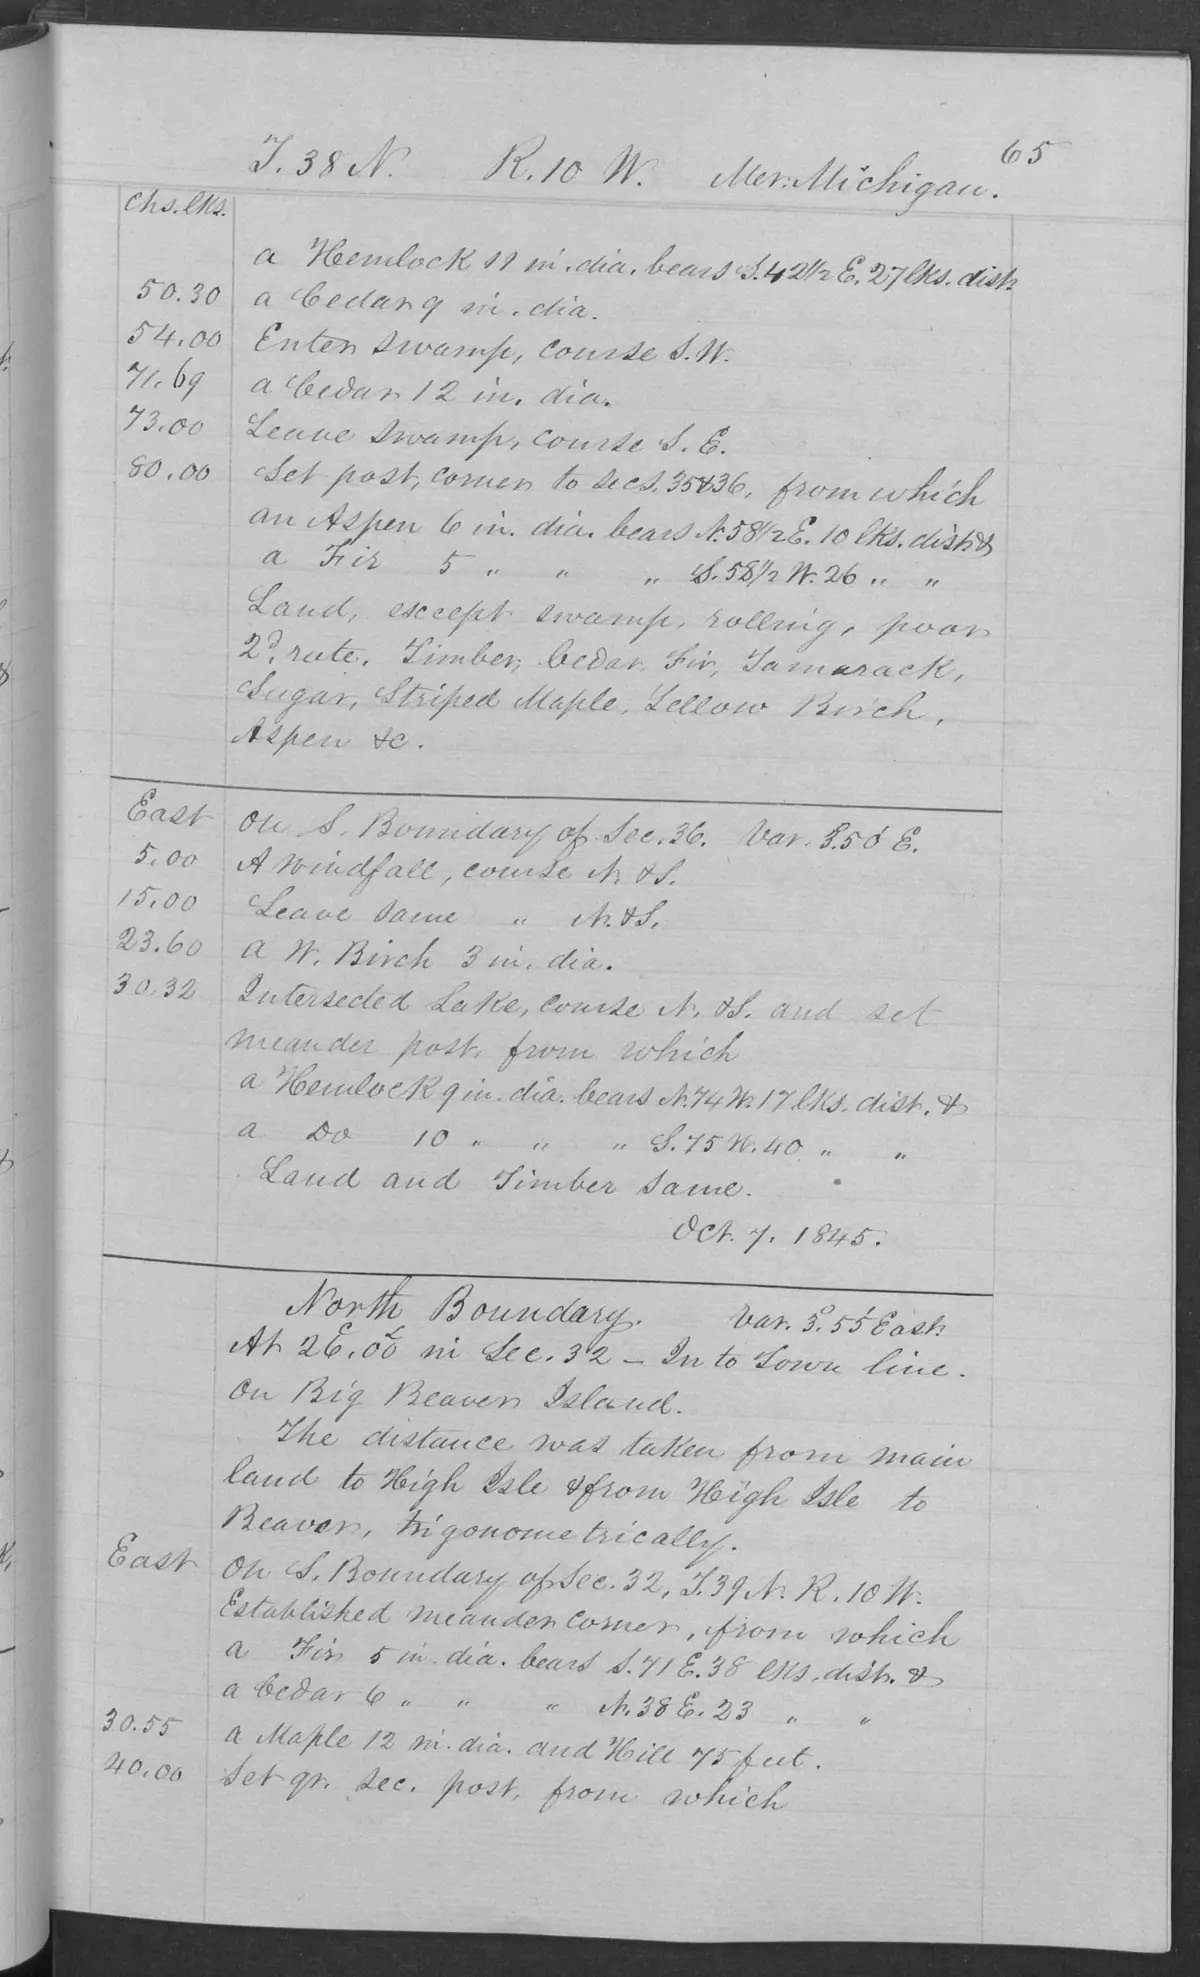 65
T. 38 N. R. 10 W. Mer. Michigan.
Chs. lks.
a Hemlock 11 in. dia. bears S. 42 1/2 E. 27 lks. dist.
50.30 a Cedar 9 in. dia.
54.00 Enter swamp, course S.W.
71.69 a Cedar 12 in. dia.
73.00 Leave swamp, course S. E.
80.00 Set post, corner to secs. 35 & 36, from which
an Aspen 6 in. dia. bears N. 58 1/2 E. 10 lks. dist. &
a Fir 5 " " " S. 58 1/2 W. 26 " "
Land, except swamp, rolling, poor
2d. rate. Timber, Cedar, Fir, Tamarack,
Sugar, Striped Maple, Yellow Birch,
Aspen &c.
East On S. Boundary of Sec. 36. Var. 3°.50' E.
5.00 A windfall, course N. & S.
15.00 Leave same " N. & S.
23.60 a W. Birch 3 in. dia.
30.32 Intersected Lake, course N. & S. and set
meander post, from which
a Hemlock 9 in. dia. bears N. 74 W. 17 lks. dist. &
a Do 10 " " " S. 75 W. 40 " "
Land and Timber same.
Oct. 7. 1845.
North Boundary. Var. 3°.55' East
At 26.00 in Sec. 32 — In to Town line.
On Big Beaver Island.
The distance was taken from main
land to High Isle & from High Isle to
Beaver, trigonometrically.
East On S. Boundary of Sec. 32, T. 39 N. R. 10 W.
Established meander corner, from which
a Fir 5 in. dia. bears S. 71 E. 38 lks. dist. &
a Cedar 6 " " " N. 38 E. 23 " "
30.55 a Maple 12 in. dia. and Hill 75 feet.
40.00 Set qr. sec. post, from which